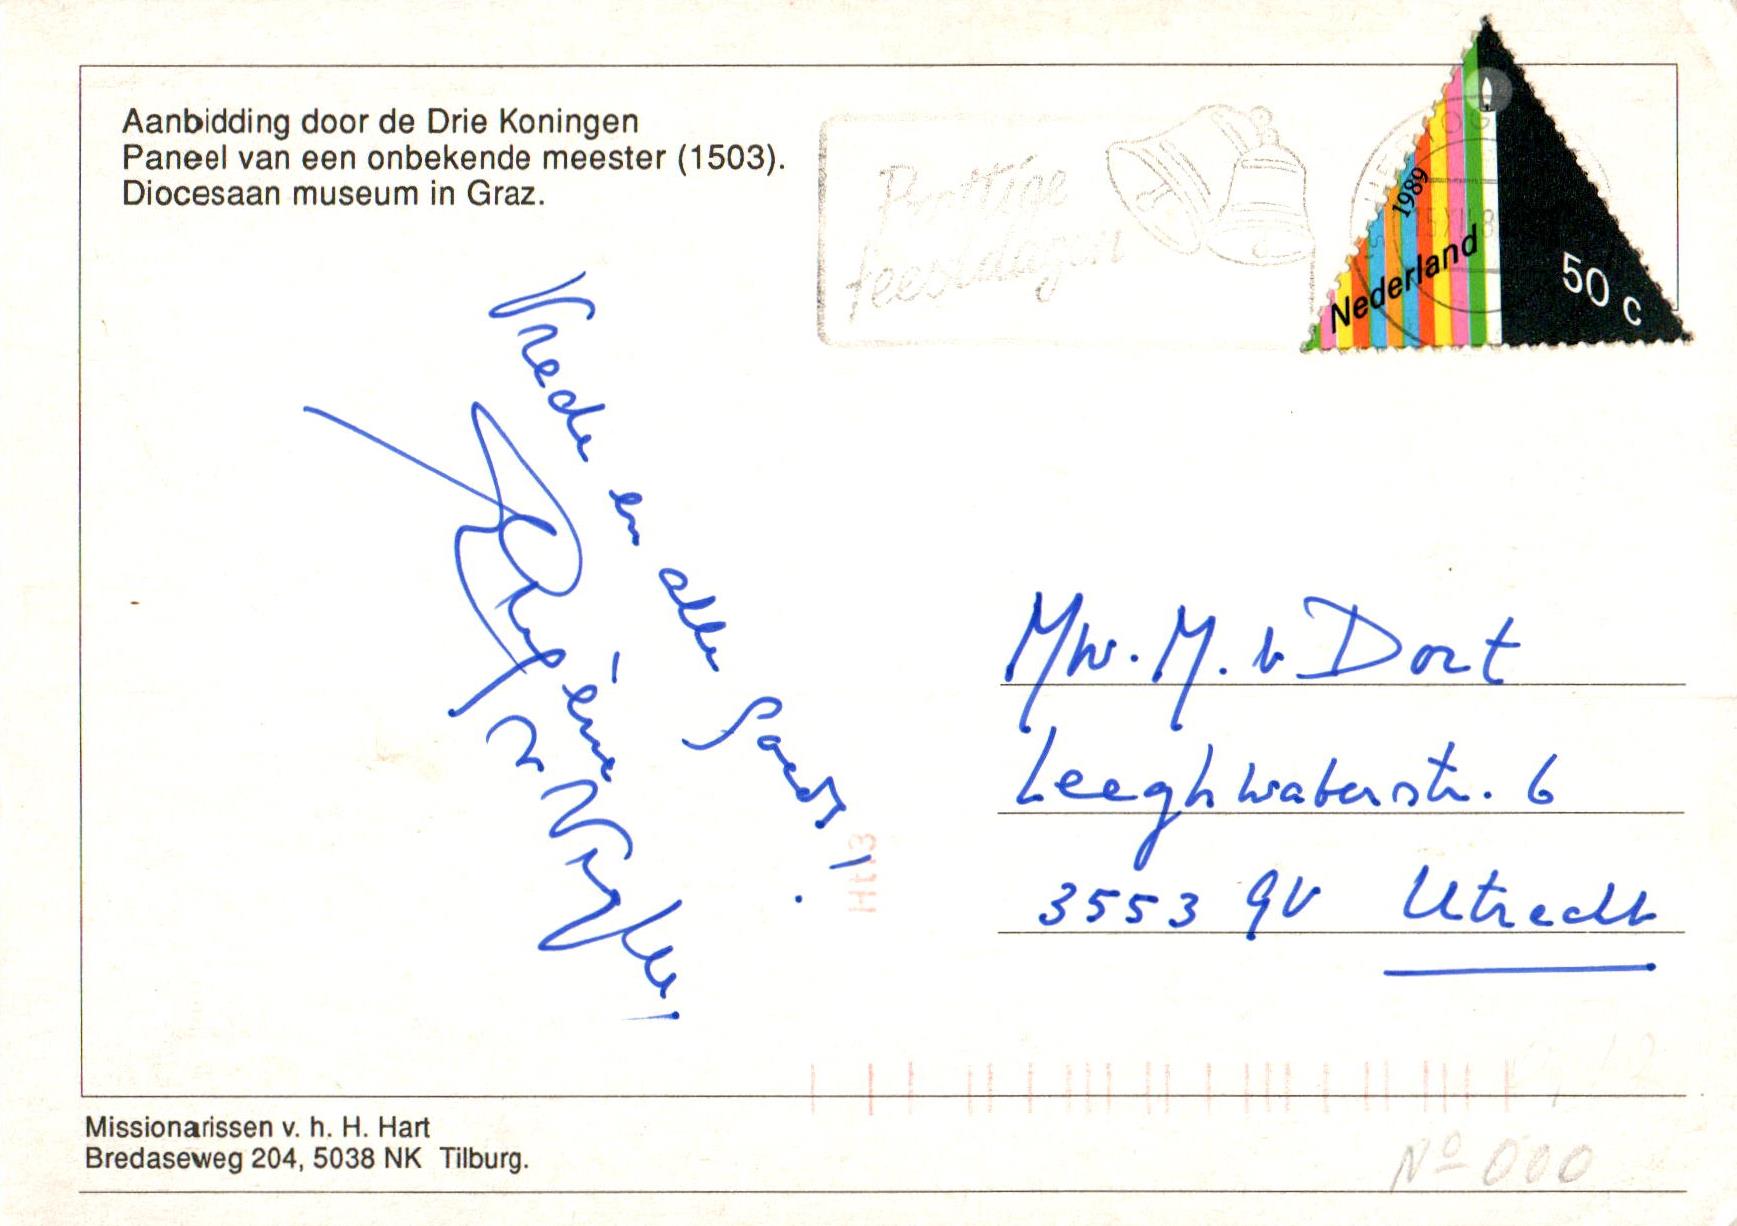 Aanbidding door de Drie Koningen
Paneel van een onbekende meester (1503).
Diocesaan museum in Graz.
Prettige
feestdagen
1989
Nederland
50 c
Vrede en alle Goeds!
Mw. M. v Dort
Leeghwaterstr. 6
3553 GV Utrecht
Htt3
Missionarissen v. h. H. Hart
Bredaseweg 204, 5038 NK Tilburg.
Nº 000